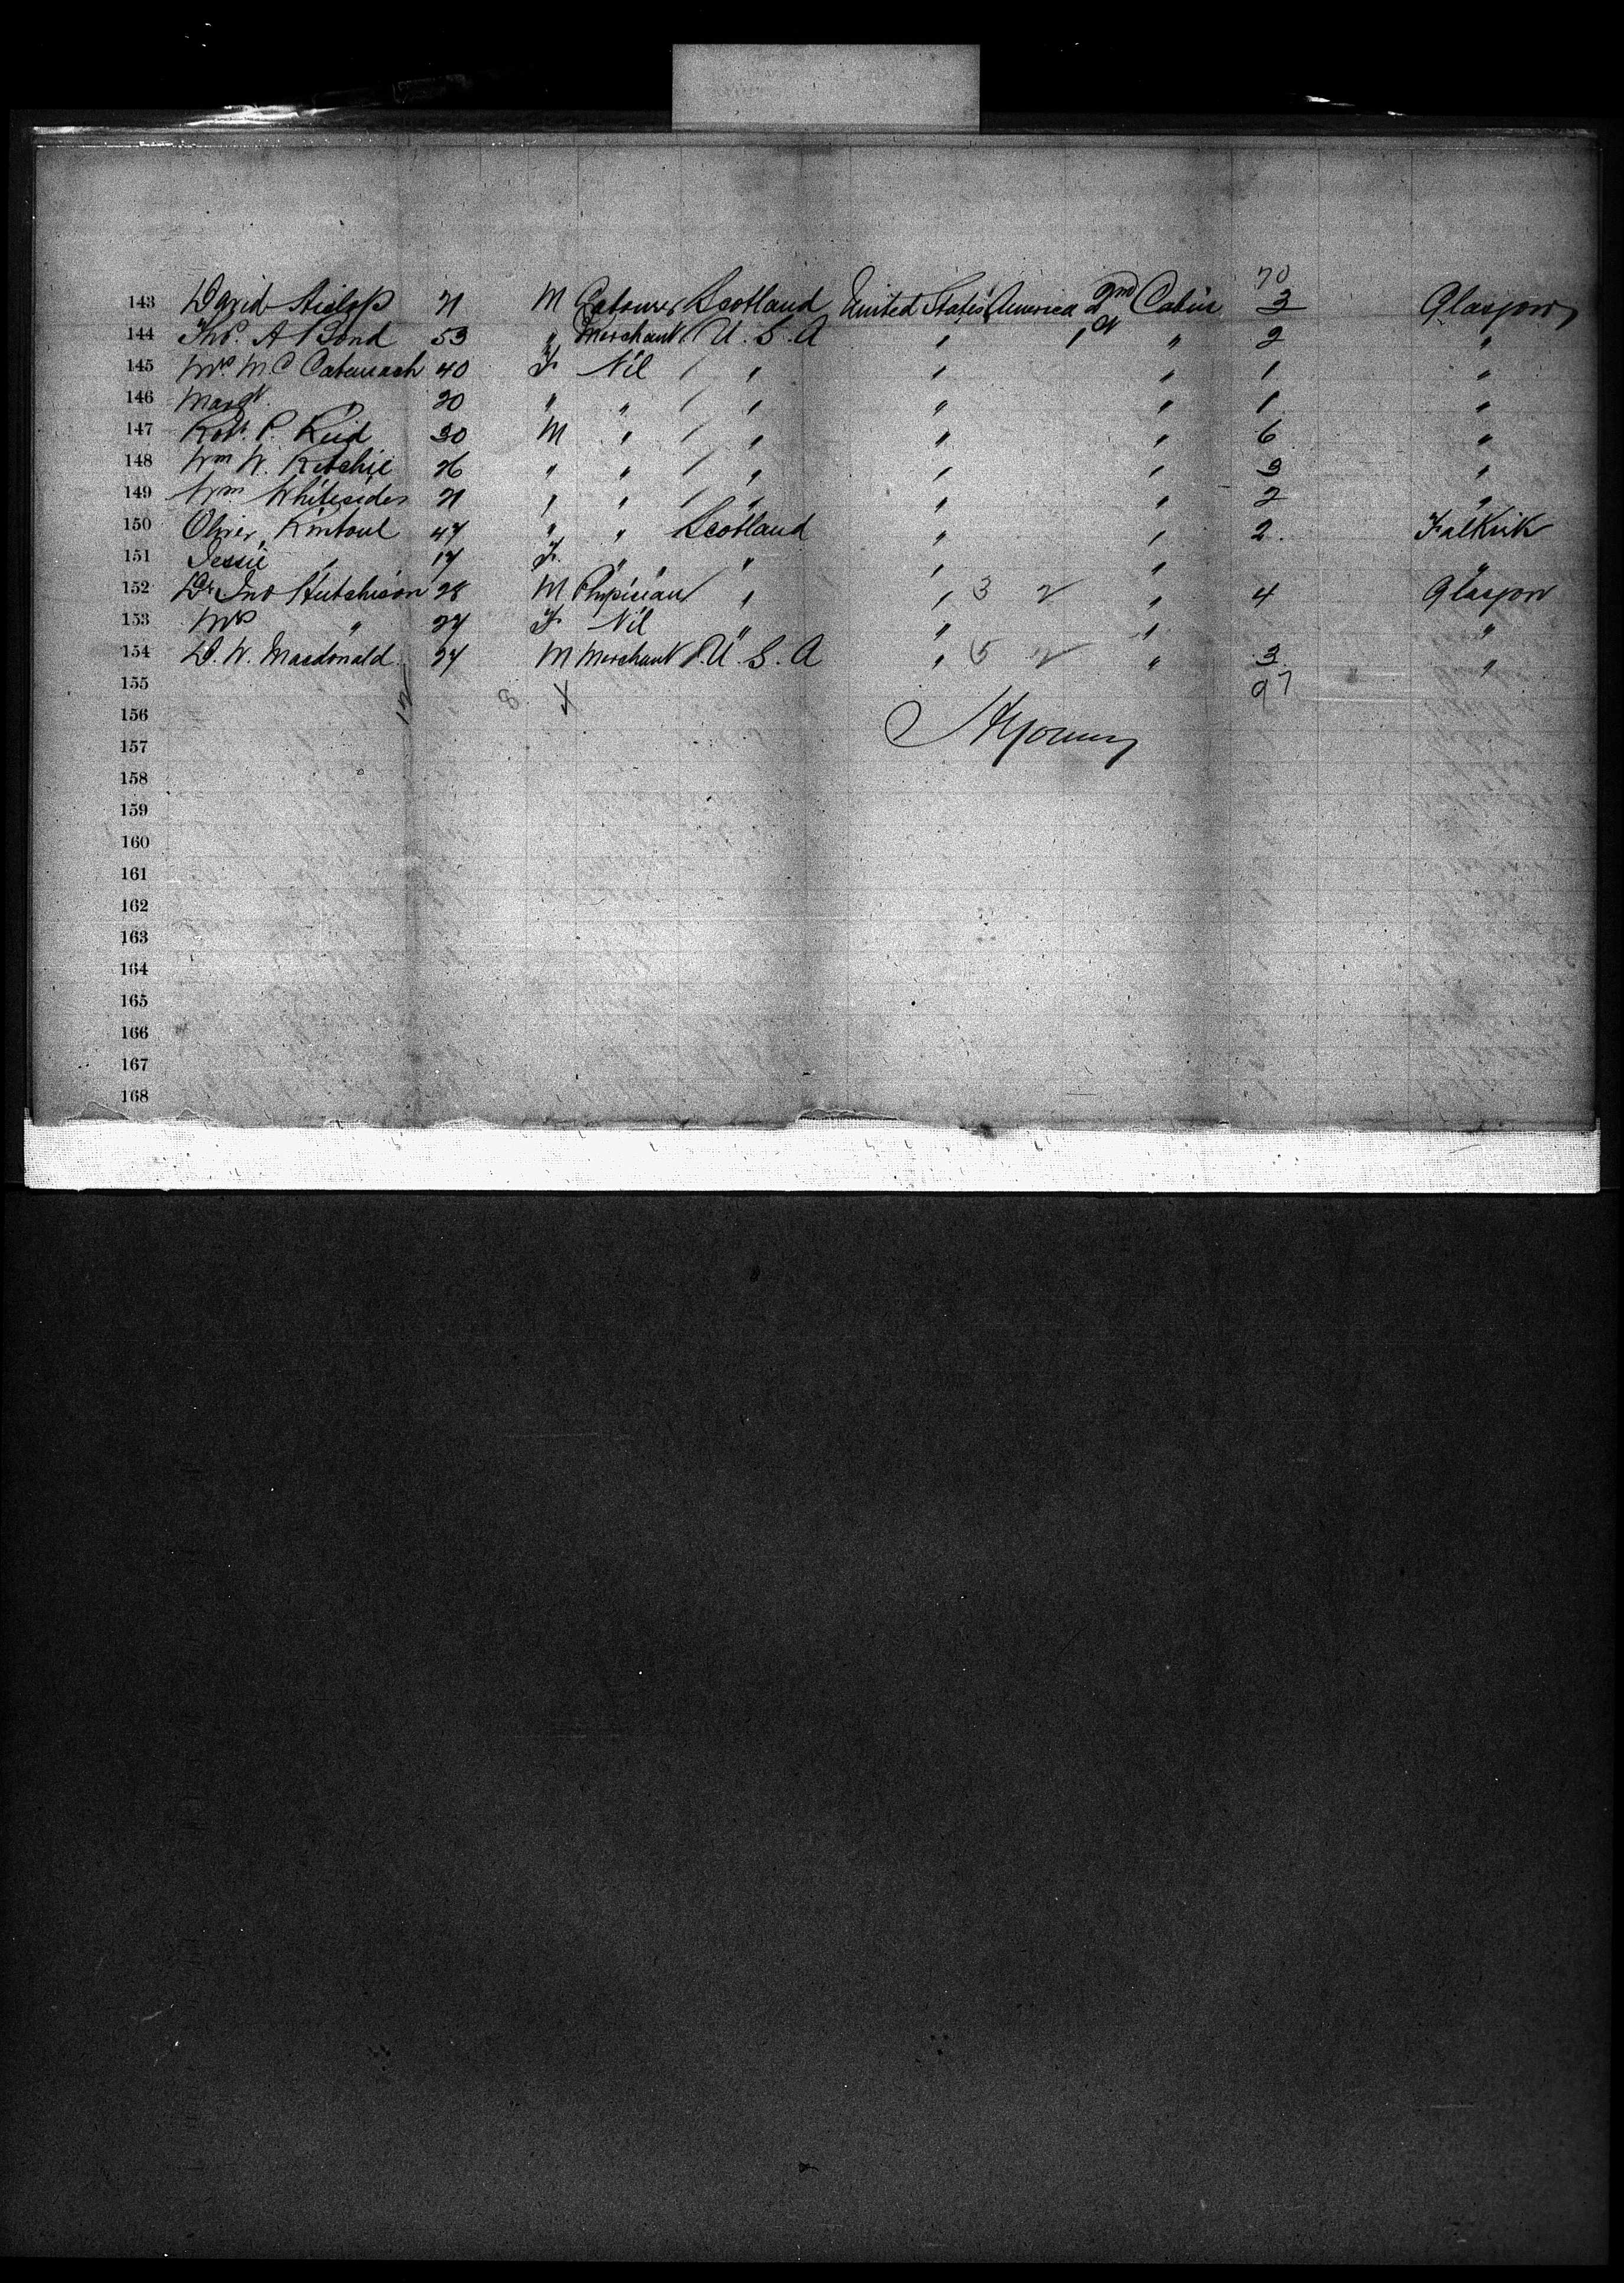 70
143 David Aislop 21 M Labourer Scotland United States America 2nd Cabin 3 Glasgow
144 Thos. A Bond 53 " Merchant U.S.A " 1st " 2 "
145 Mrs M C Catanach 40 F Nil / " " " 1 "
146 Margt. " 20 " " / " " " 1 "
147 Robt. P. Reid 30 M " / " " " 6 "
148 Wm W. Ritchie 26 " " / " " " 3 "
149 Wm Whitesides 21 " " / " " " 2 "
150 Oliver Kintoul 47 " " Scotland " " 2. Falkirk
151 Jessie " 17 F. " " " " "
152 Dr. Jno Hutchison 28 M Physician " " 3 2 " 4 Glasgow
153 Mrs " 27 F Nil " " " "
154 D. W. Macdonald 27 M Merchant U.S.A " 5 2 " 3 "
155 12 8 X 97
156
157
158
159
160
161
162
163
164
165
166
167
168